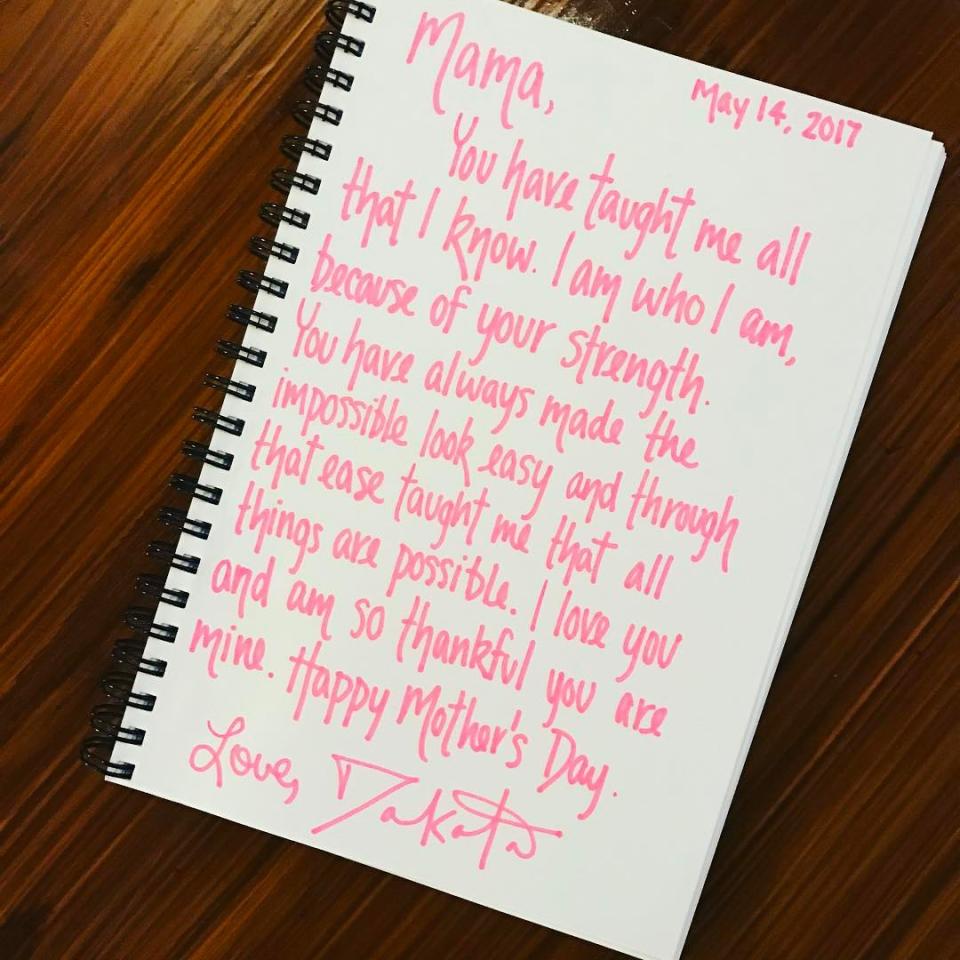 May 14, 2017
Mama,
You have taught me all
that I know. I am who I am,
because of your strength.
You have always made the
impossible look easy and through
that ease taught me that all
things are possible. I love you
and am so thankful you are
mine. Happy Mother's Day.
Love, Dakota